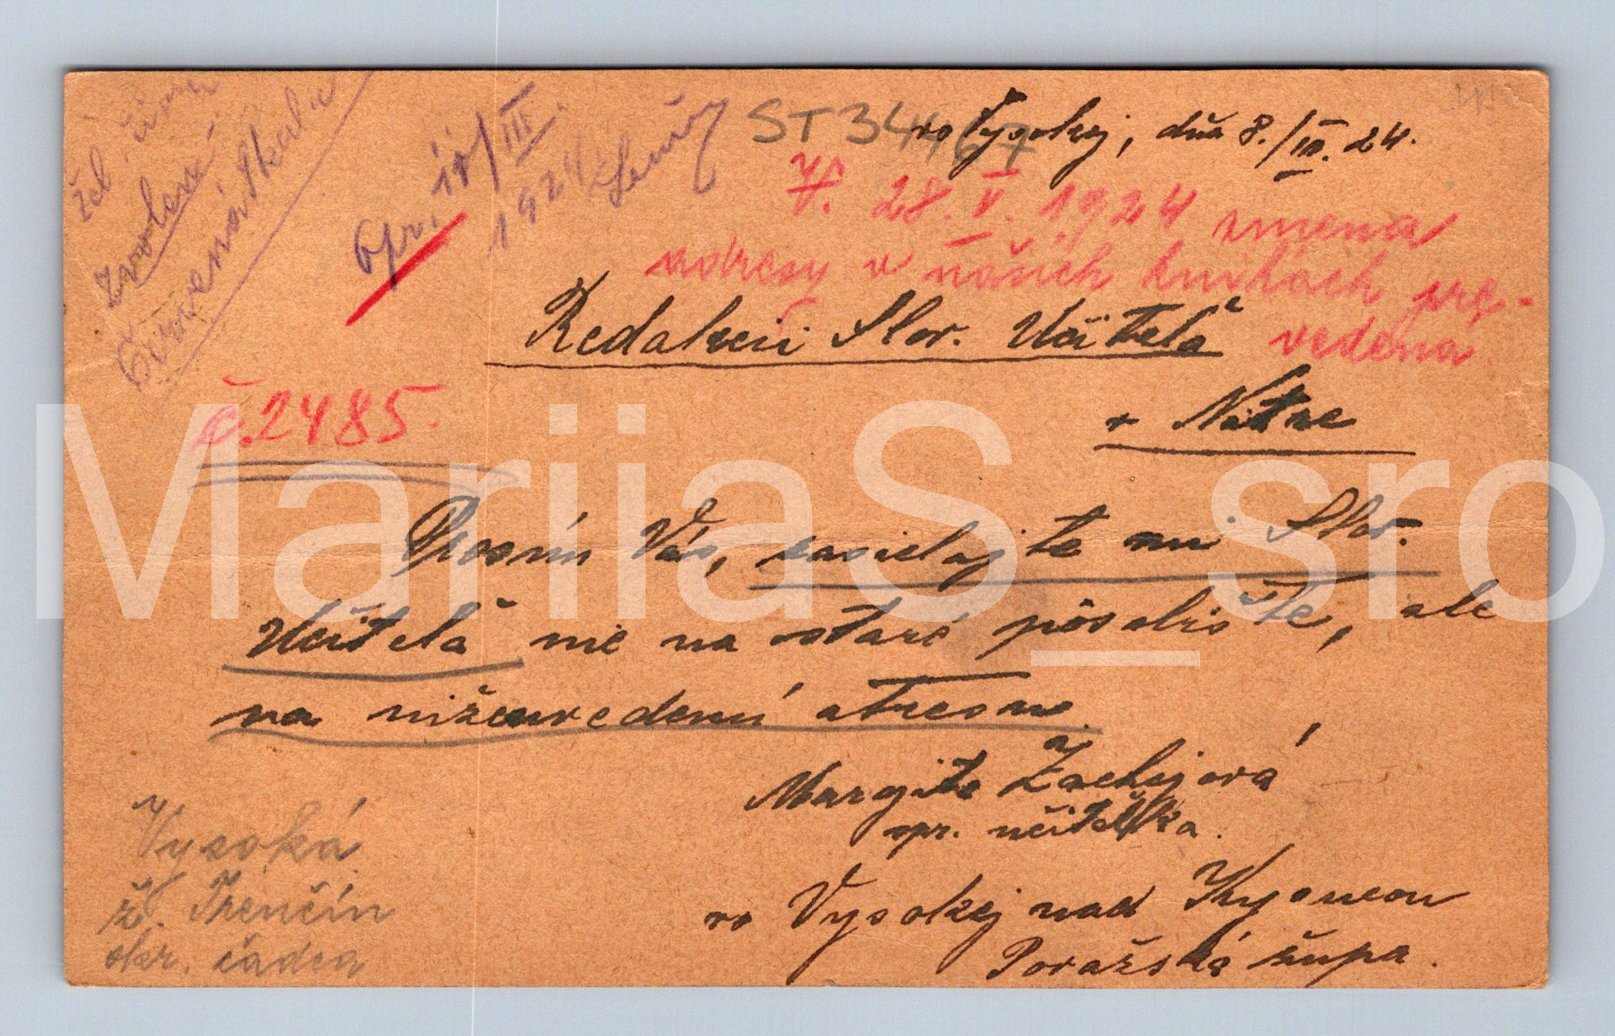 opr. 11/III.
1924 
ST 34467
vo Vysokej, dňa 8./III. 24.
28. V. 1924 zmena
adresy v našich knihách pre-
vedena
Redakcii Slov. Učiteľa
v Nitre
č. 2485.
Prosím Vás, zasielajte mi Slov.
Učiteľa nie na staré pôsobište, ale
na nižeuvedenú adresu.
Margita
spr. učiteľka.
vo Vysokej nad Kysucou
Považská župa.
Vysoká
ž. Trenčín
okr. čadca
MariiaS_sro